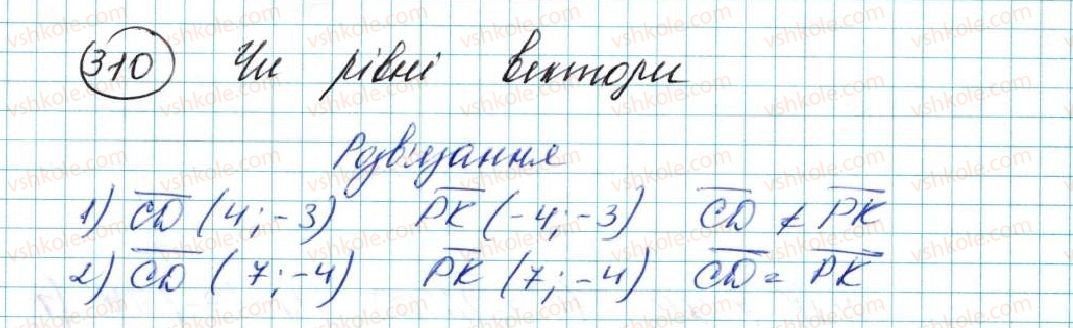 310 Чи рівні вектори
Розв'язання
1) CD (4; -3) PK (-4; -3) CD ≠ PK
2) CD (7; -4) PK (7; -4) CD = PK